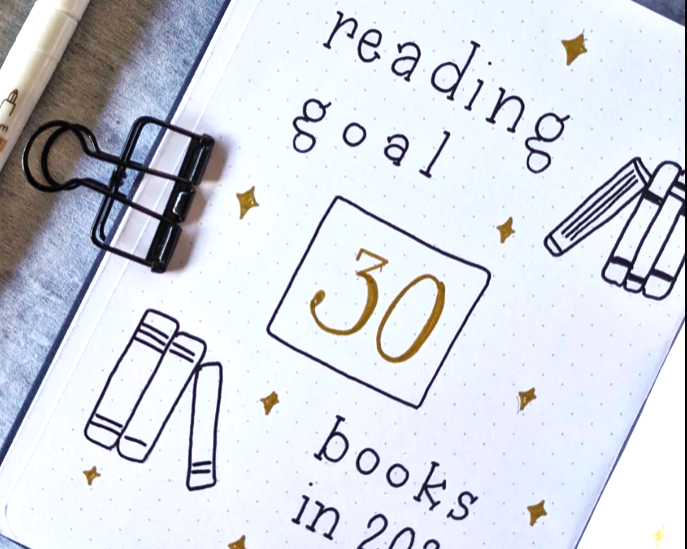 reading
goal
30
books
in